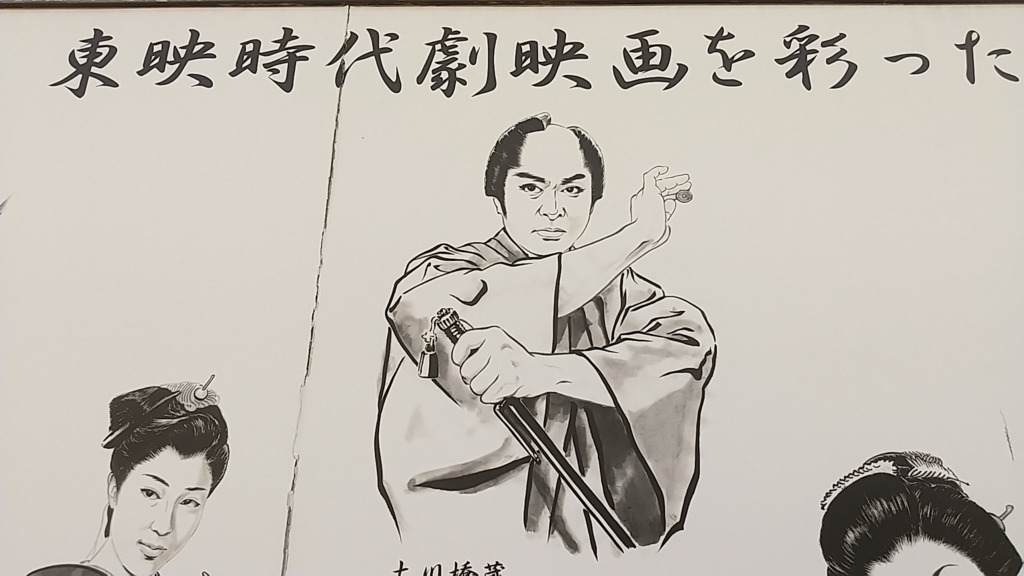 東映時代劇映画を彩った
大川橋蔵